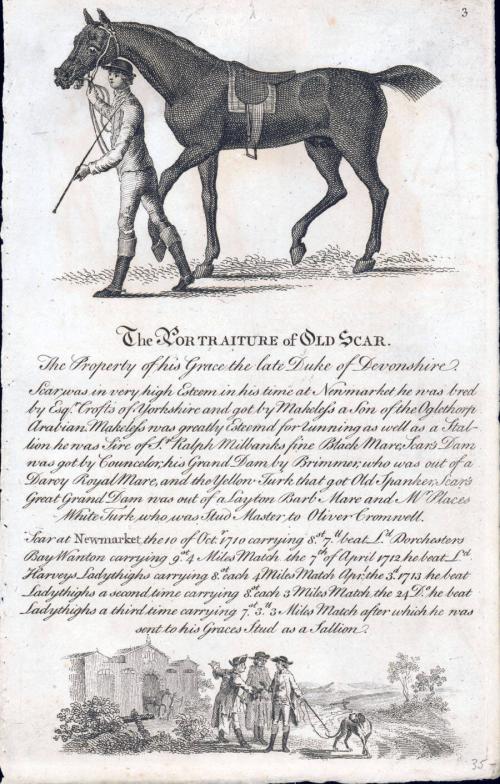 3
The PORTRAITURE of OLD SCAR.
The Property of his Grace the late Duke of Devonshire.
Scar was in very high Esteem in his time at Newmarket he was bred
by Esqr. Crofts of Yorkshire and got by Makeless a Son of the Oglethorp
Arabian Makeless was greatly Esteemd for running as well as a Stal-
lion he was Sire of Sr. Ralph Milbanks fine Black Mare, Scar's Dam
was got by Councelor, his Grand Dam by Brimmer, who was out of a
Darcy Royal Mare, and the Yellow Turk that got Old Spanker, Scar's
Great Grand Dam was out of a Layton Barb Mare and Mr. Places
White Turk, who was Stud Master to Oliver Cromwell.
Scar at Newmarket the 10 of Oct. 1710 carrying 8st. 7lb. beat Ld. Dorchesters
Bay Wanton carrying 9st. 4 Miles Match the 7th of April 1712 he beat Ld.
Harveys Ladythighs carrying 8st. each 4 Miles Match Aprl. the 3d. 1713 he beat
Ladythighs a second time carrying 8st. each 3 Miles Match the 24 Do. he beat
Ladythighs a third time carrying 7st. 3lb. 3 Miles Match after which he was
sent to his Graces Stud as a Sallion.
35